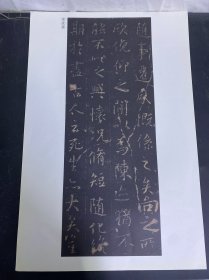 隨事遷感慨係之矣向之所
欣俛仰之閒以為陳迹猶不
能不以之興懷況脩短隨化終
期於盡古人云死生亦大矣豈